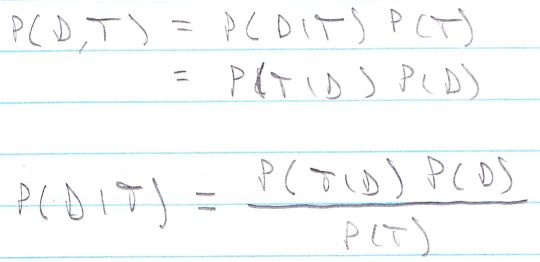 P(D,T) = P(D|T) P(T)
= P(T|D) P(D)
P(D|T) = P(T|D) P(D)
P(T)